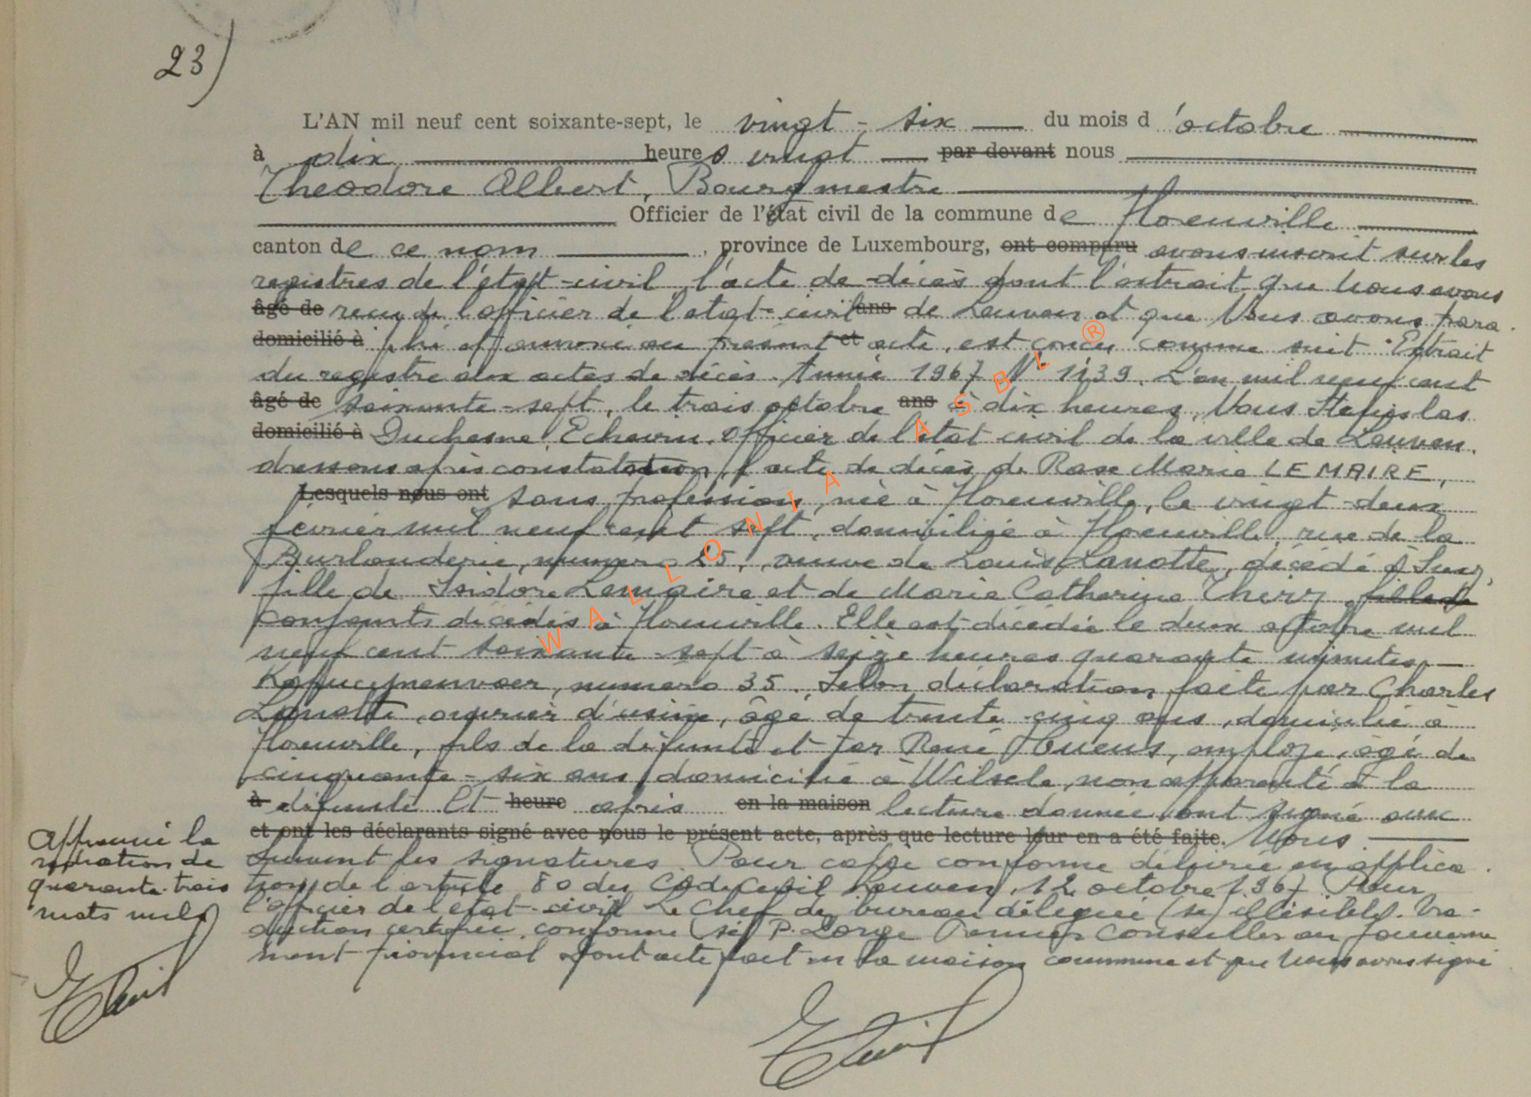 23)
L'AN mil neuf cent soixante-sept, le vingt-six du mois d'octobre
à dix heures vingt par devant nous
Théodore Albert, Bourgmestre
Officier de l'état civil de la commune de Florenville
canton de ce nom, province de Luxembourg, ont comparu avons inscrit sur les
registres de l'état-civil l'acte de décès dont l'extrait que Nous avons
âgé de reçu de l'officier de l'état-civil ans de Leuven et que Nous avons para
domicilié à phé et annexé au présent et acte, est conçu comme suit : Extrait
du registre aux actes de décès. Année 1967 N° 1139. L'an mil neuf cent
âgé de soixante-sept, le trois octobre ans à dix heures, Nous Stanislas
domicilié à Duchesne Echevin, Officier de l'état civil de la ville de Leuven.
dressons après constatation, l'acte de décès de Rose Marie LEMAIRE,
Lesquels nous ont sans profession, née à Florenville, le vingt-deux
février mil neuf cent sept, domiciliée à Florenville, rue de la
Burlanderie, numéro 25, veuve de Louis Lanotte, décédé à Suxy,
fille de Isidore Lemaire et de Marie Catherine Thiry, fille de
conjoints décédés à Florenville. Elle est décédée le deux octobre mil
neuf cent soixante-sept à seize heures quarante minutes,
Kapucijnenvoer, numéro 35. Selon déclaration faite par Charles
Lanotte, ouvrier d'usine, âgé de trente-cinq ans, domicilié à
Florenville, fils de la défunte et par René Huens, employé, âgé de
cinquante-six ans, domicilié à Wilsele, non apparenté à la
à défunte Et heure après en la maison lecture donnée ont signé avec
et ont les déclarants signé avec nous le présent acte, après que lecture leur en a été faite. Nous
Suivent les signatures. Pour copie conforme délivrée en applica
tion de l'article 80 du Code Civil Leuven, 12 octobre 1967 Pour
l'officier de l'état-civil Le Chef de bureau délégué (sé) illisible. Tra-
duction certifiée conforme (sé) P. Lorge Premier Conseiller au Gouverne
ment provincial Dont acte fait en la maison commune et que Nous avons signé
Approuvé la
radiation de
quarante-trois
mots nuls
WALLONIA ASBL ®